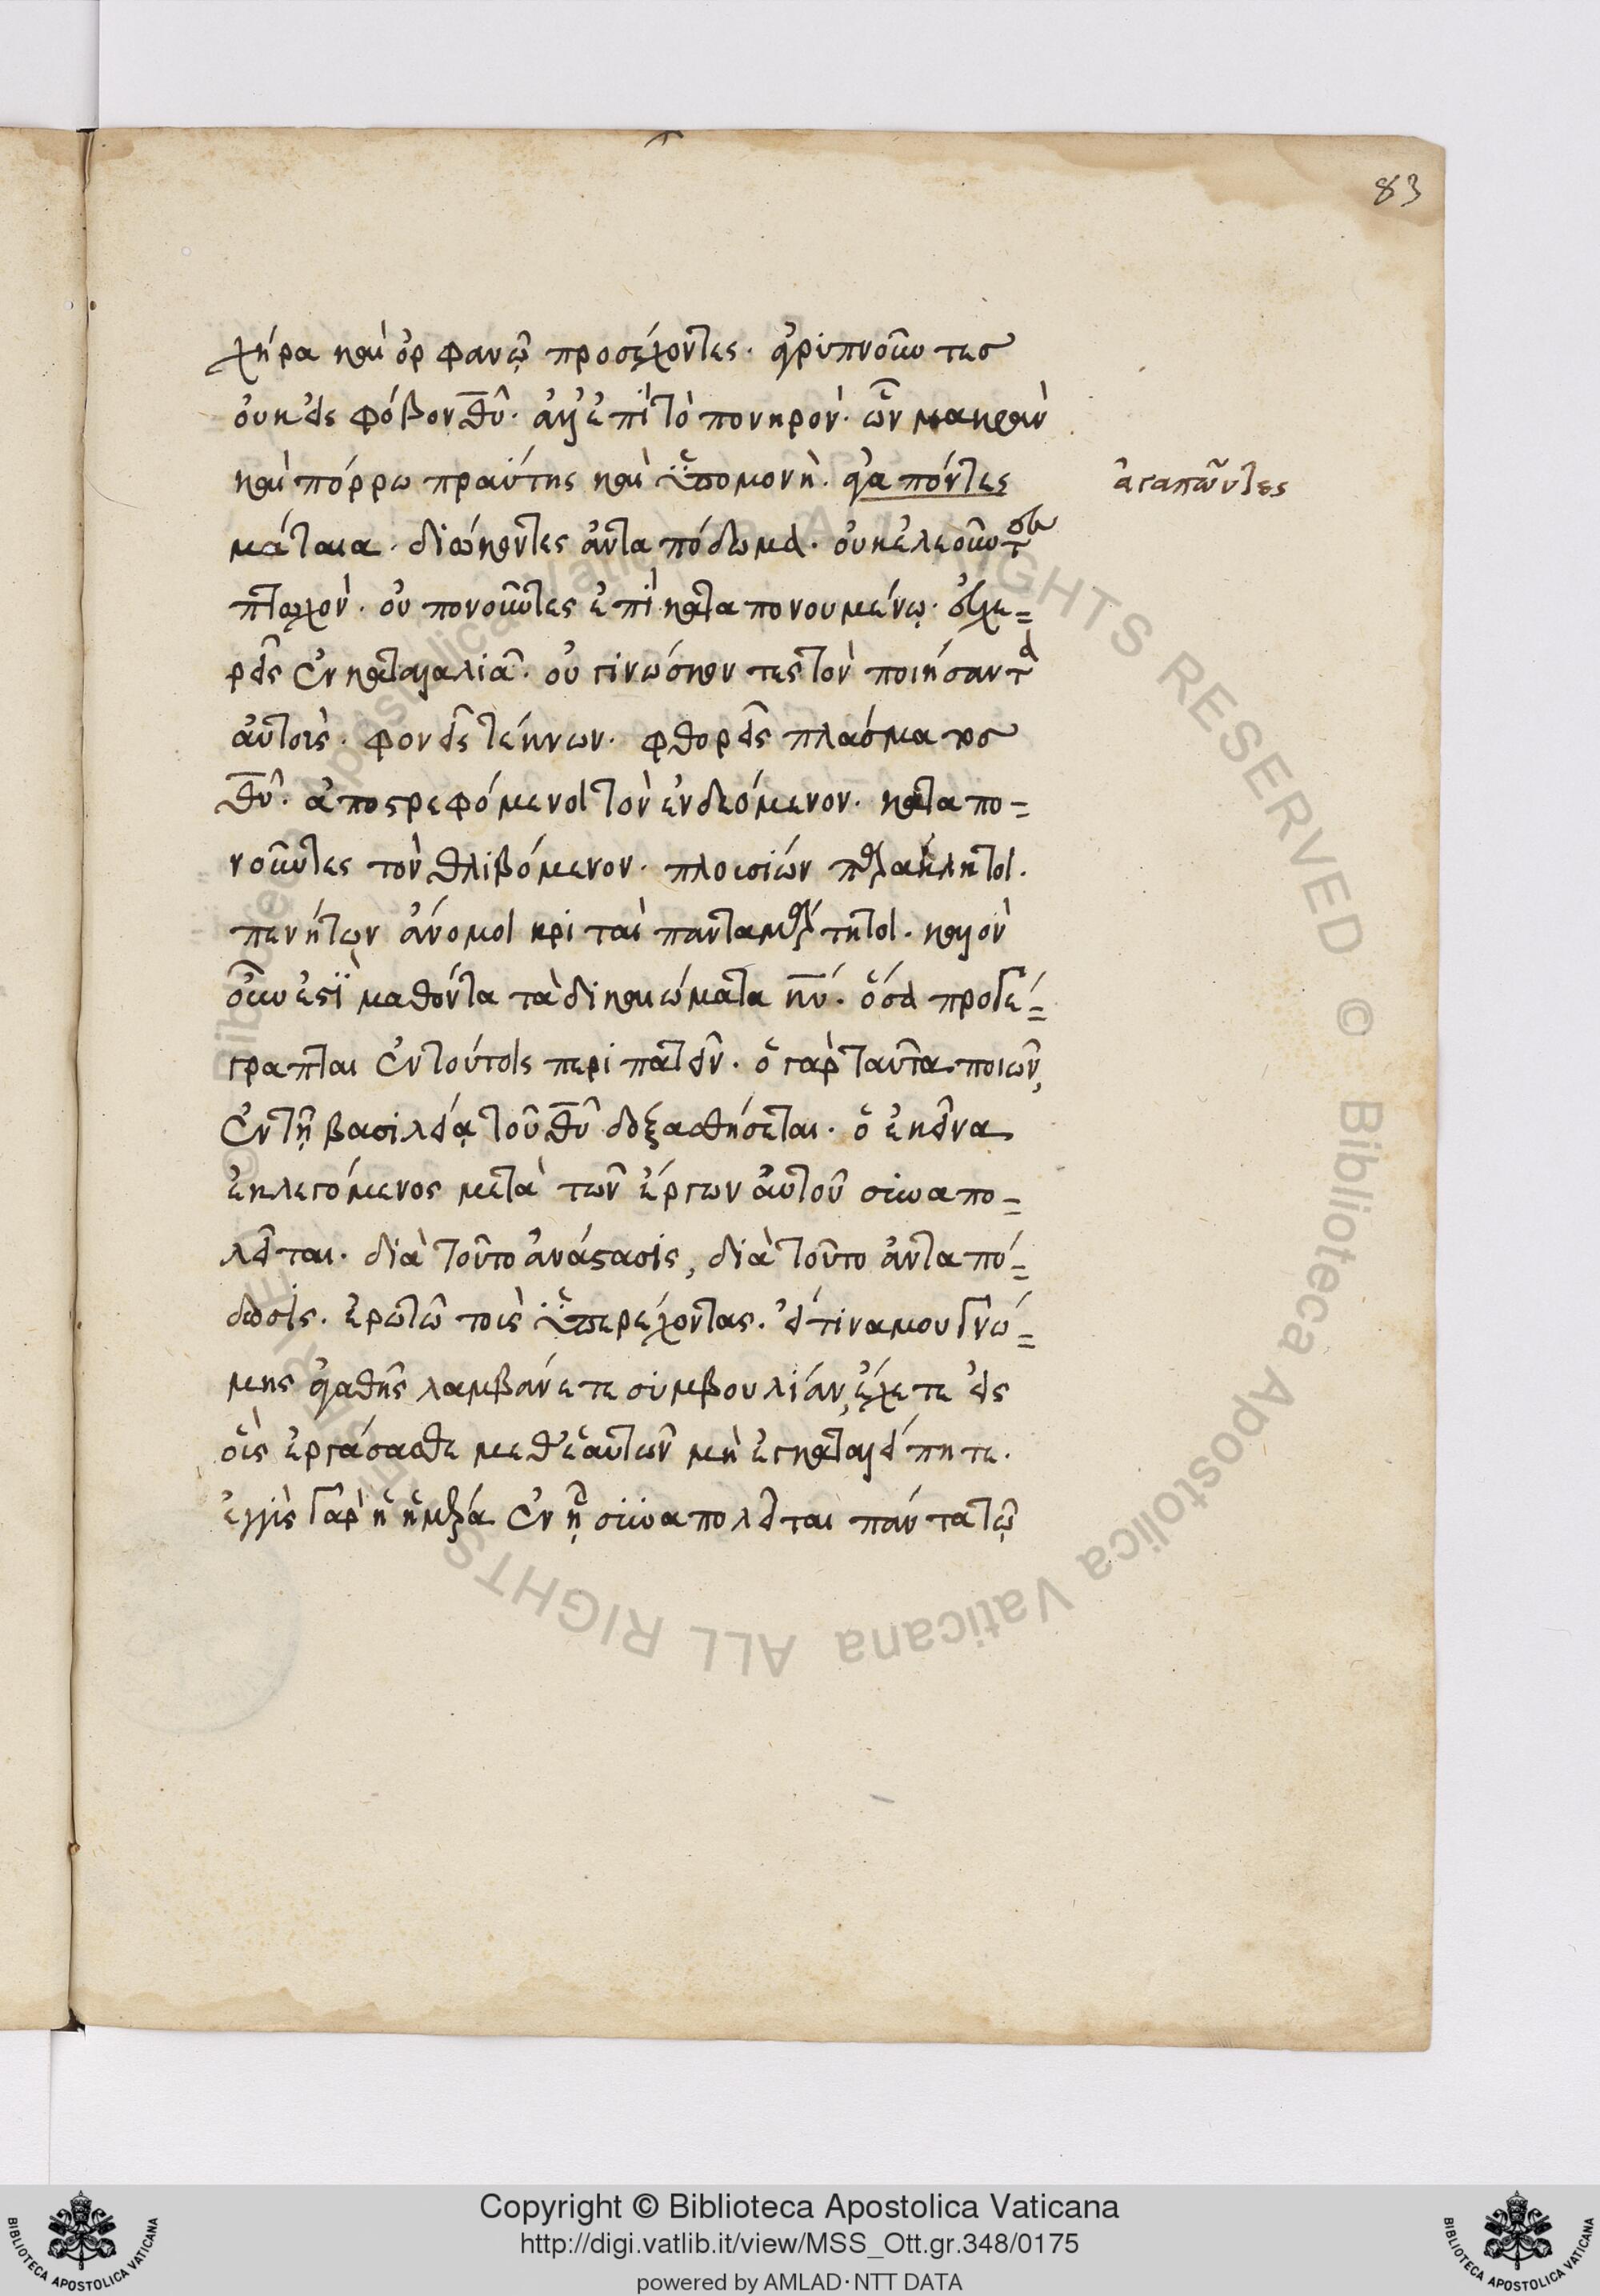 83
χήρα καὶ ὀρφανῷ προσέχοντες. ἀγριπνοῦντες
οὐκ εἰς φόβον θ̅υ̅. ἀλλ' ἐπὶ τὸ πονηρόν. ὧν μακρὰν
καὶ πόρρω πραΰτης καὶ ὑπομονὴ. ἀγαπόντες
ἀγαπῶντες
μάταια. διώκοντες ἀνταπόδωμα. οὐκ ἐλεοῦντες
πτωχὸν. οὐ πονοῦντες ἐπὶ καταπονουμένῳ. εὐχε=
ρεῖς ἐν καταλαλιᾶ. οὐ γινώσκοντες τὸν ποιήσαντα
αὐτοὺς. φονεῖς τέκνων. φθορεῖς πλάσματος
θ̅υ̅. ἀποστρεφόμενοι τὸν ἐνδεόμενον. καταπο=
νοῦντες τὸν θλιβόμενον. πλουσίων παράκλητοι.
πενήτων ἄνομοι κριταὶ πανταμάρτητοι. καλὸν
οὖν ἐστὶ μαθόντα τὰ δικαιώματα κ̅υ̅. ὅσα προγέ=
γραπται ἐν τούτοις περιπατεῖν. ὁ γὰρ ταῦτα ποιῶν,
ἐν τῇ βασιλείᾳ τοῦ θ̅υ̅ δοξασθήσεται. ὁ ἐκεῖνα
ἐκλεγόμενος μετὰ τῶν ἔργων αὐτοῦ συναπο=
λεῖται. διὰ τοῦτο ἀνάστασις, διὰ τοῦτο ἀνταπό=
δοσις. ἐρωτῶ τοὺς ὑπερέχοντας. εἴ τινα μου γνώ=
μης ἀγαθῆς λαμβάνετε συμβουλίαν, ἔχετε εἰς
οἷς ἐργάσασθε μεθ' ἑαυτῶν μὴ ἐγκαταλείπητε.
ἐγγὺς γὰρ ἡ ἡμέρα ἐν ᾗ συναπολεῖται πάντα τῷ
Copyright © Biblioteca Apostolica Vaticana
http://digi.vatlib.it/view/MSS_Ott.gr.348/0175
powered by AMLAD·NTT DATA